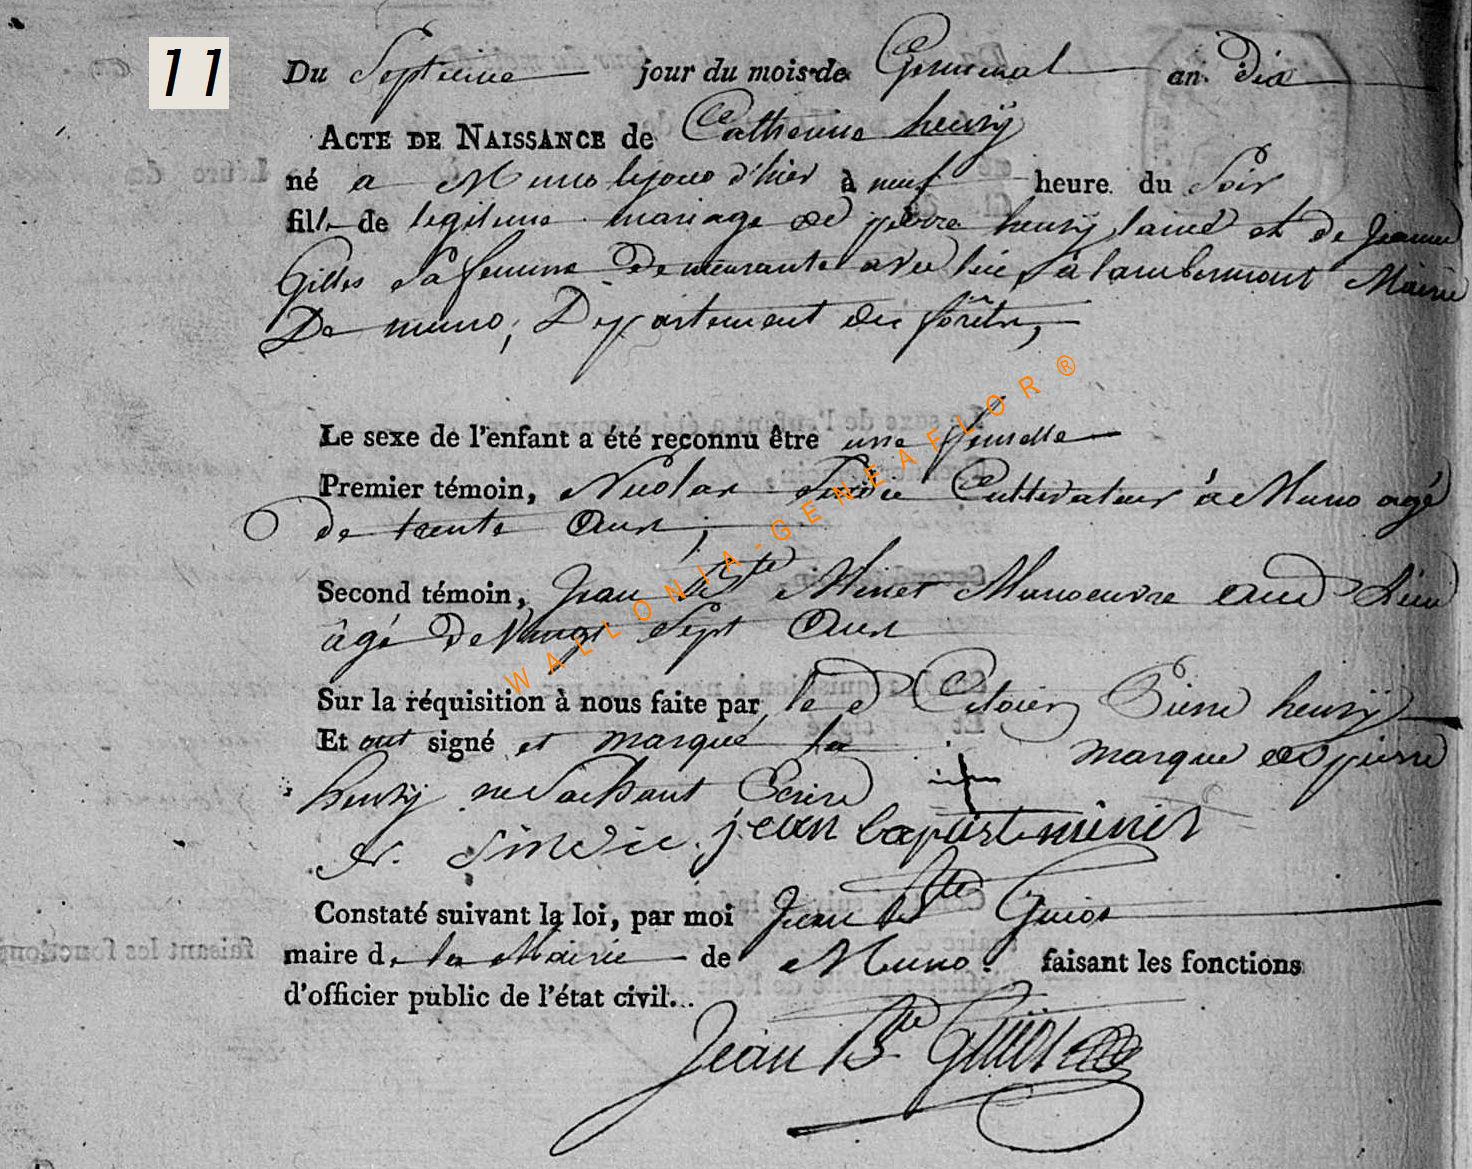 11
Du Septieme jour du mois de Germinal an dix
ACTE DE NAISSANCE de Catherine henrÿ
né a Muno lejour d'hier à neuf heure du Soir
fille de legitime mariage de pierre henrÿ lainé et de Jeanne
Gilles Sa femme Demeurante avec lui, a lambermont Mairie
De muno, Département des forêts,
Le sexe de l'enfant a été reconnu être une femelle
Premier témoin, Nicolas Cultivateur à Muno agé
de trente Ans,
Second témoin, Jean Bte Minet Manoeuvre aud Lieu
âgé De Vingt Sept Ans
Sur la réquisition à nous faite par le d Citoien Pierre henrÿ
Et ont signé et marqué la marque de pierre
henrÿ ne Sachant Ecrire
N. Sindic. jean baptiste minet
Constaté suivant la loi, par moi Jean Bte Guiot
maire de la Mairie de Muno. faisant les fonctions
d'officier public de l'état civil...
Jean Bte Guiot
WALLONIA-GENEAFLOR ®